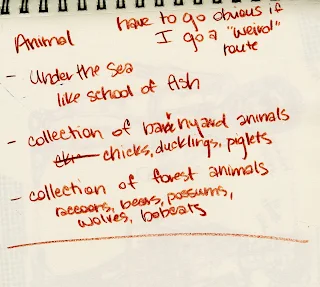 have to go obvious if
Animal I go a "weird"
route
- Under the Sea
like school of fish
- collection of barnyard animals
chicks, ducklings, piglets
- collection of forest animals
raccoons, bears, possums,
wolves, bobcats